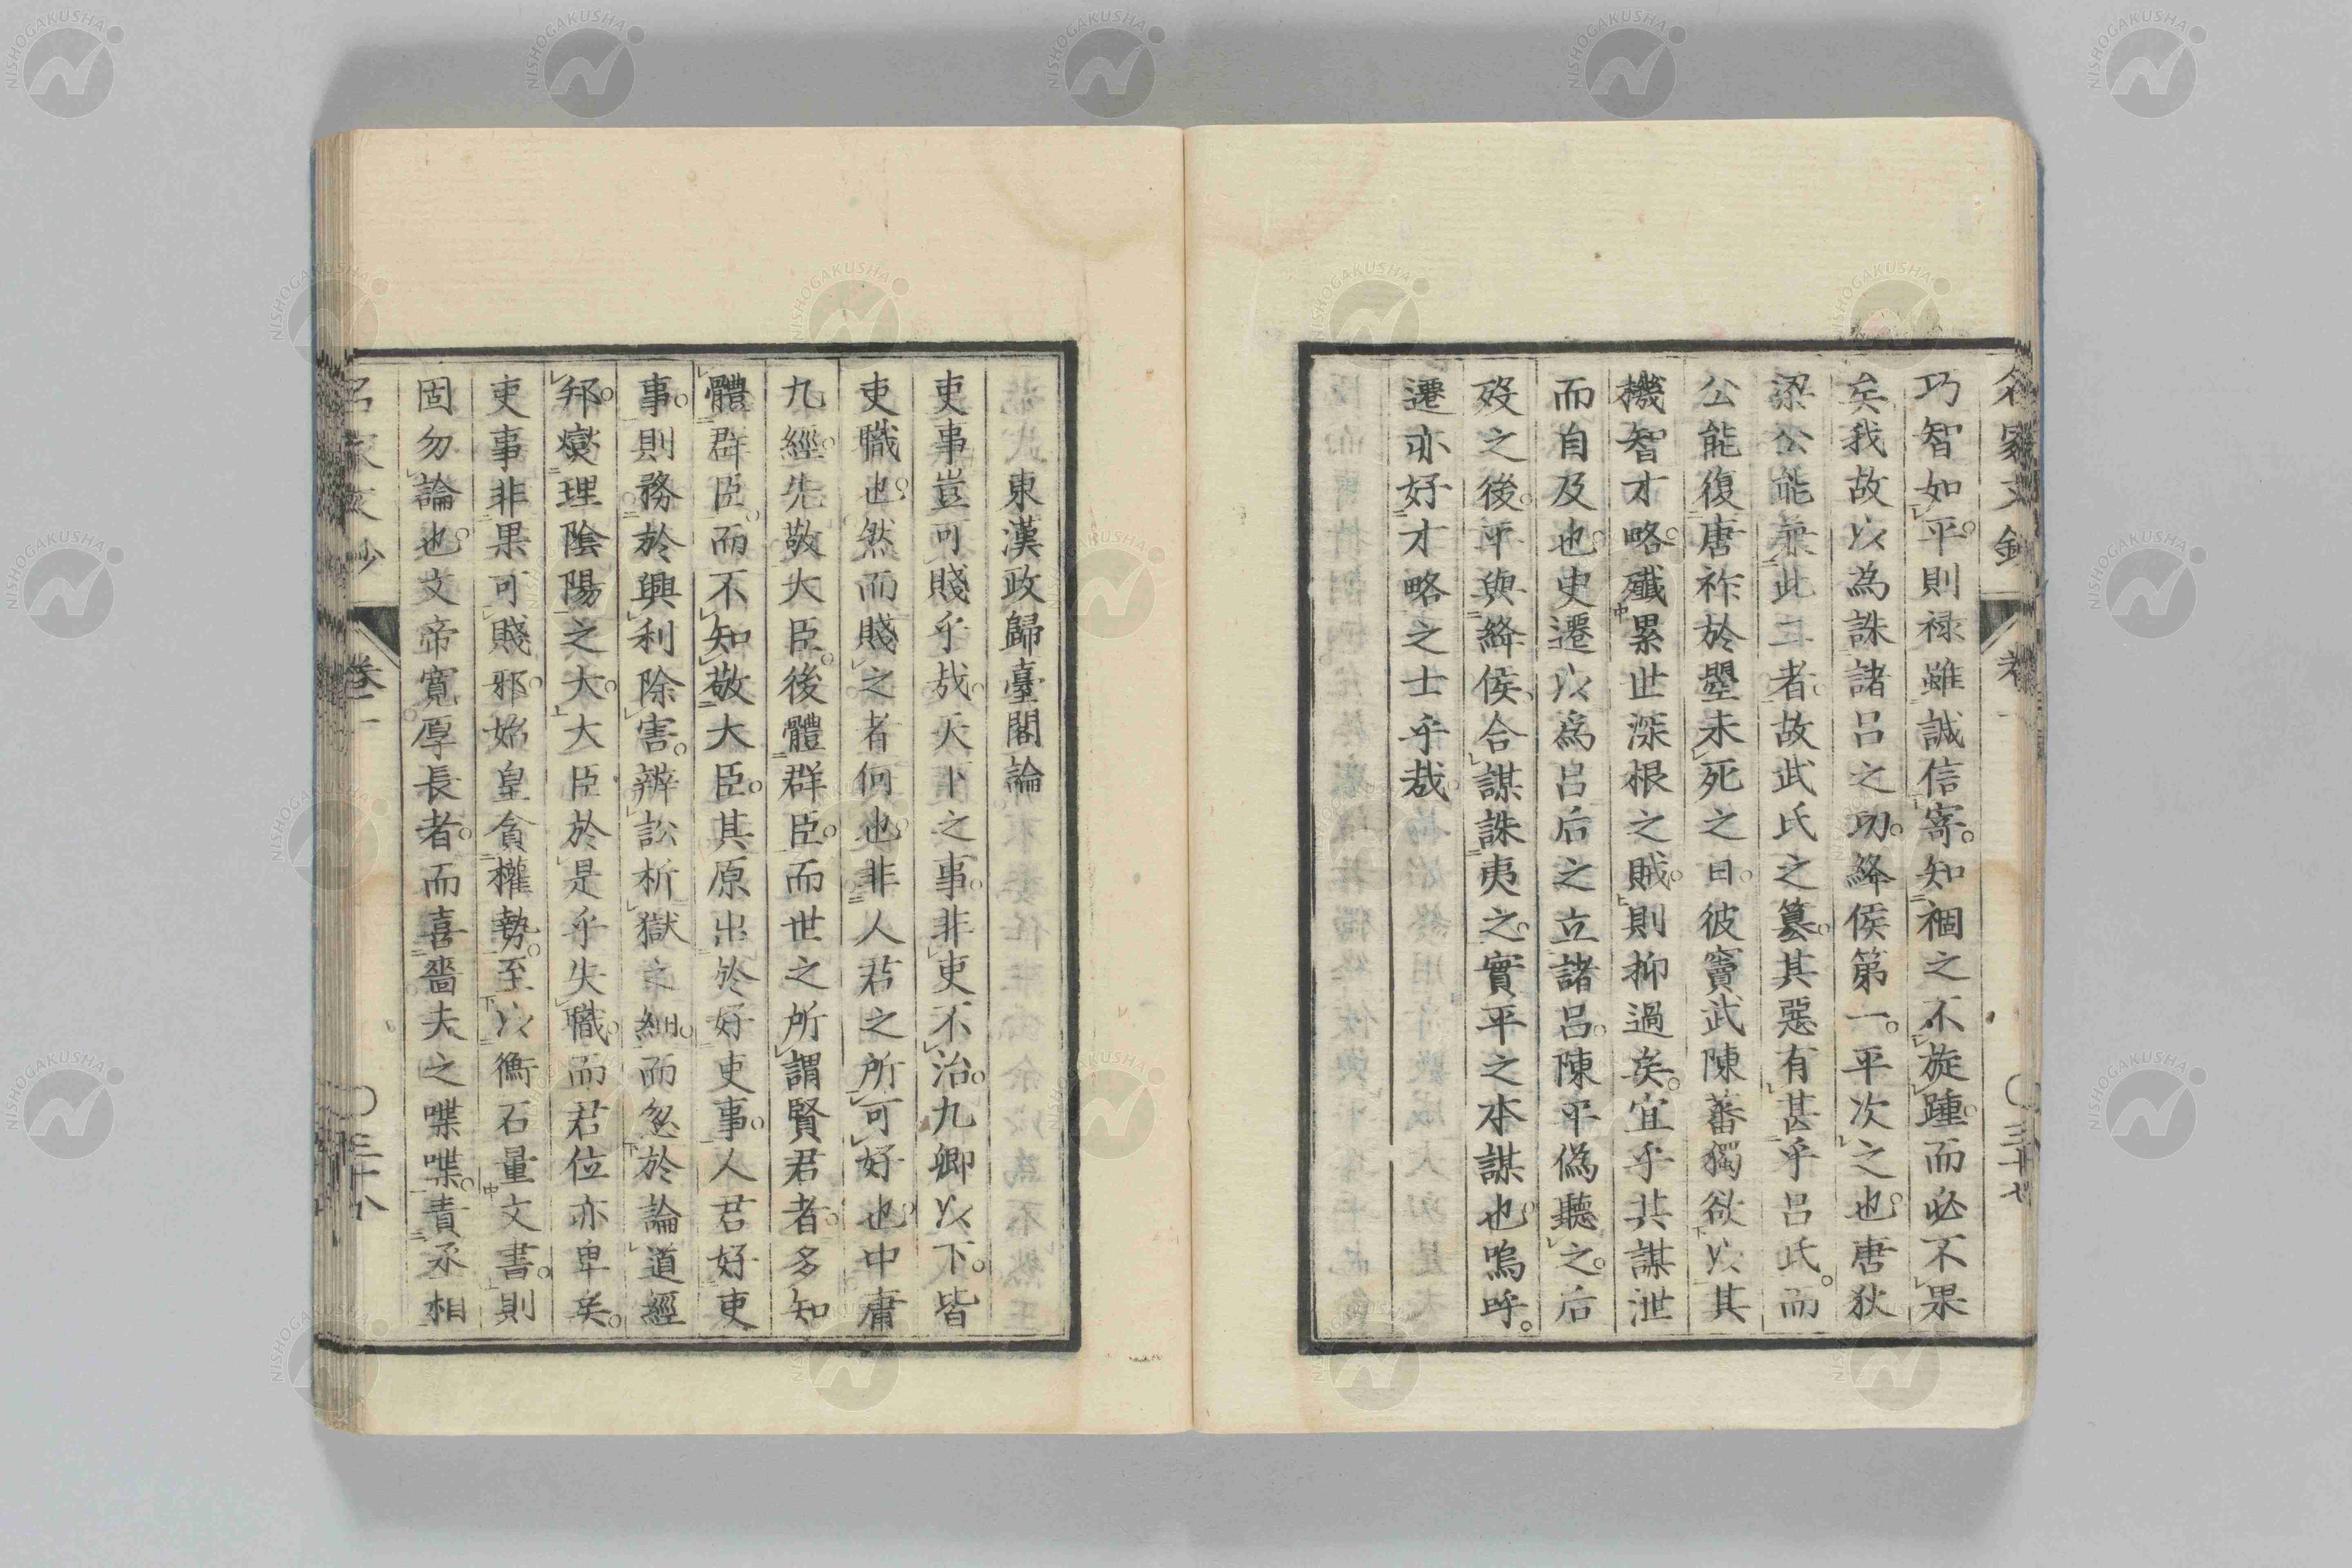 名家文鈔 卷一 〇三十七
巧智如平。則祿雖誠信寄。知禍之不旋踵。而必不果
矣我故以為誅諸呂之功。絳侯第一。平次之也。唐狄
梁公能兼此三者。故武氏之篡。其惡有甚乎呂氏。而
公能復唐祚於嬰未死之日。彼竇武陳蕃獨欲以其
機智才略。殲累世深根之賊。則抑過矣。宜乎其謀泄
而自及也。史遷以為呂后之立諸呂。陳平偽聽之。后
歿之後。平與絳侯。合謀誅夷之。實平之本謀也。嗚呼。
遷亦好才略之士乎哉。
東漢政歸臺閣論
吏事豈可賤乎哉。天下之事。非吏不治。九卿以下。皆
吏職也。然而賤之者何也。非人君之所可好也。中庸
九經。先敬大臣。後體群臣。而世之所謂賢君者。多知
體群臣。而不知敬大臣。其原出於好吏事。人君好吏
事。則務於興利除害。辨訟析獄之細。而忽於論道經
邦。燮理陰陽之大。大臣於是乎失職。而君位亦卑矣。
吏事非果可賤邪。始皇貪權勢。至以衡石量文書。則
固勿論也。文帝寬厚長者。而喜嗇夫之喋喋。責丞相
名家文鈔 卷一 〇三十八